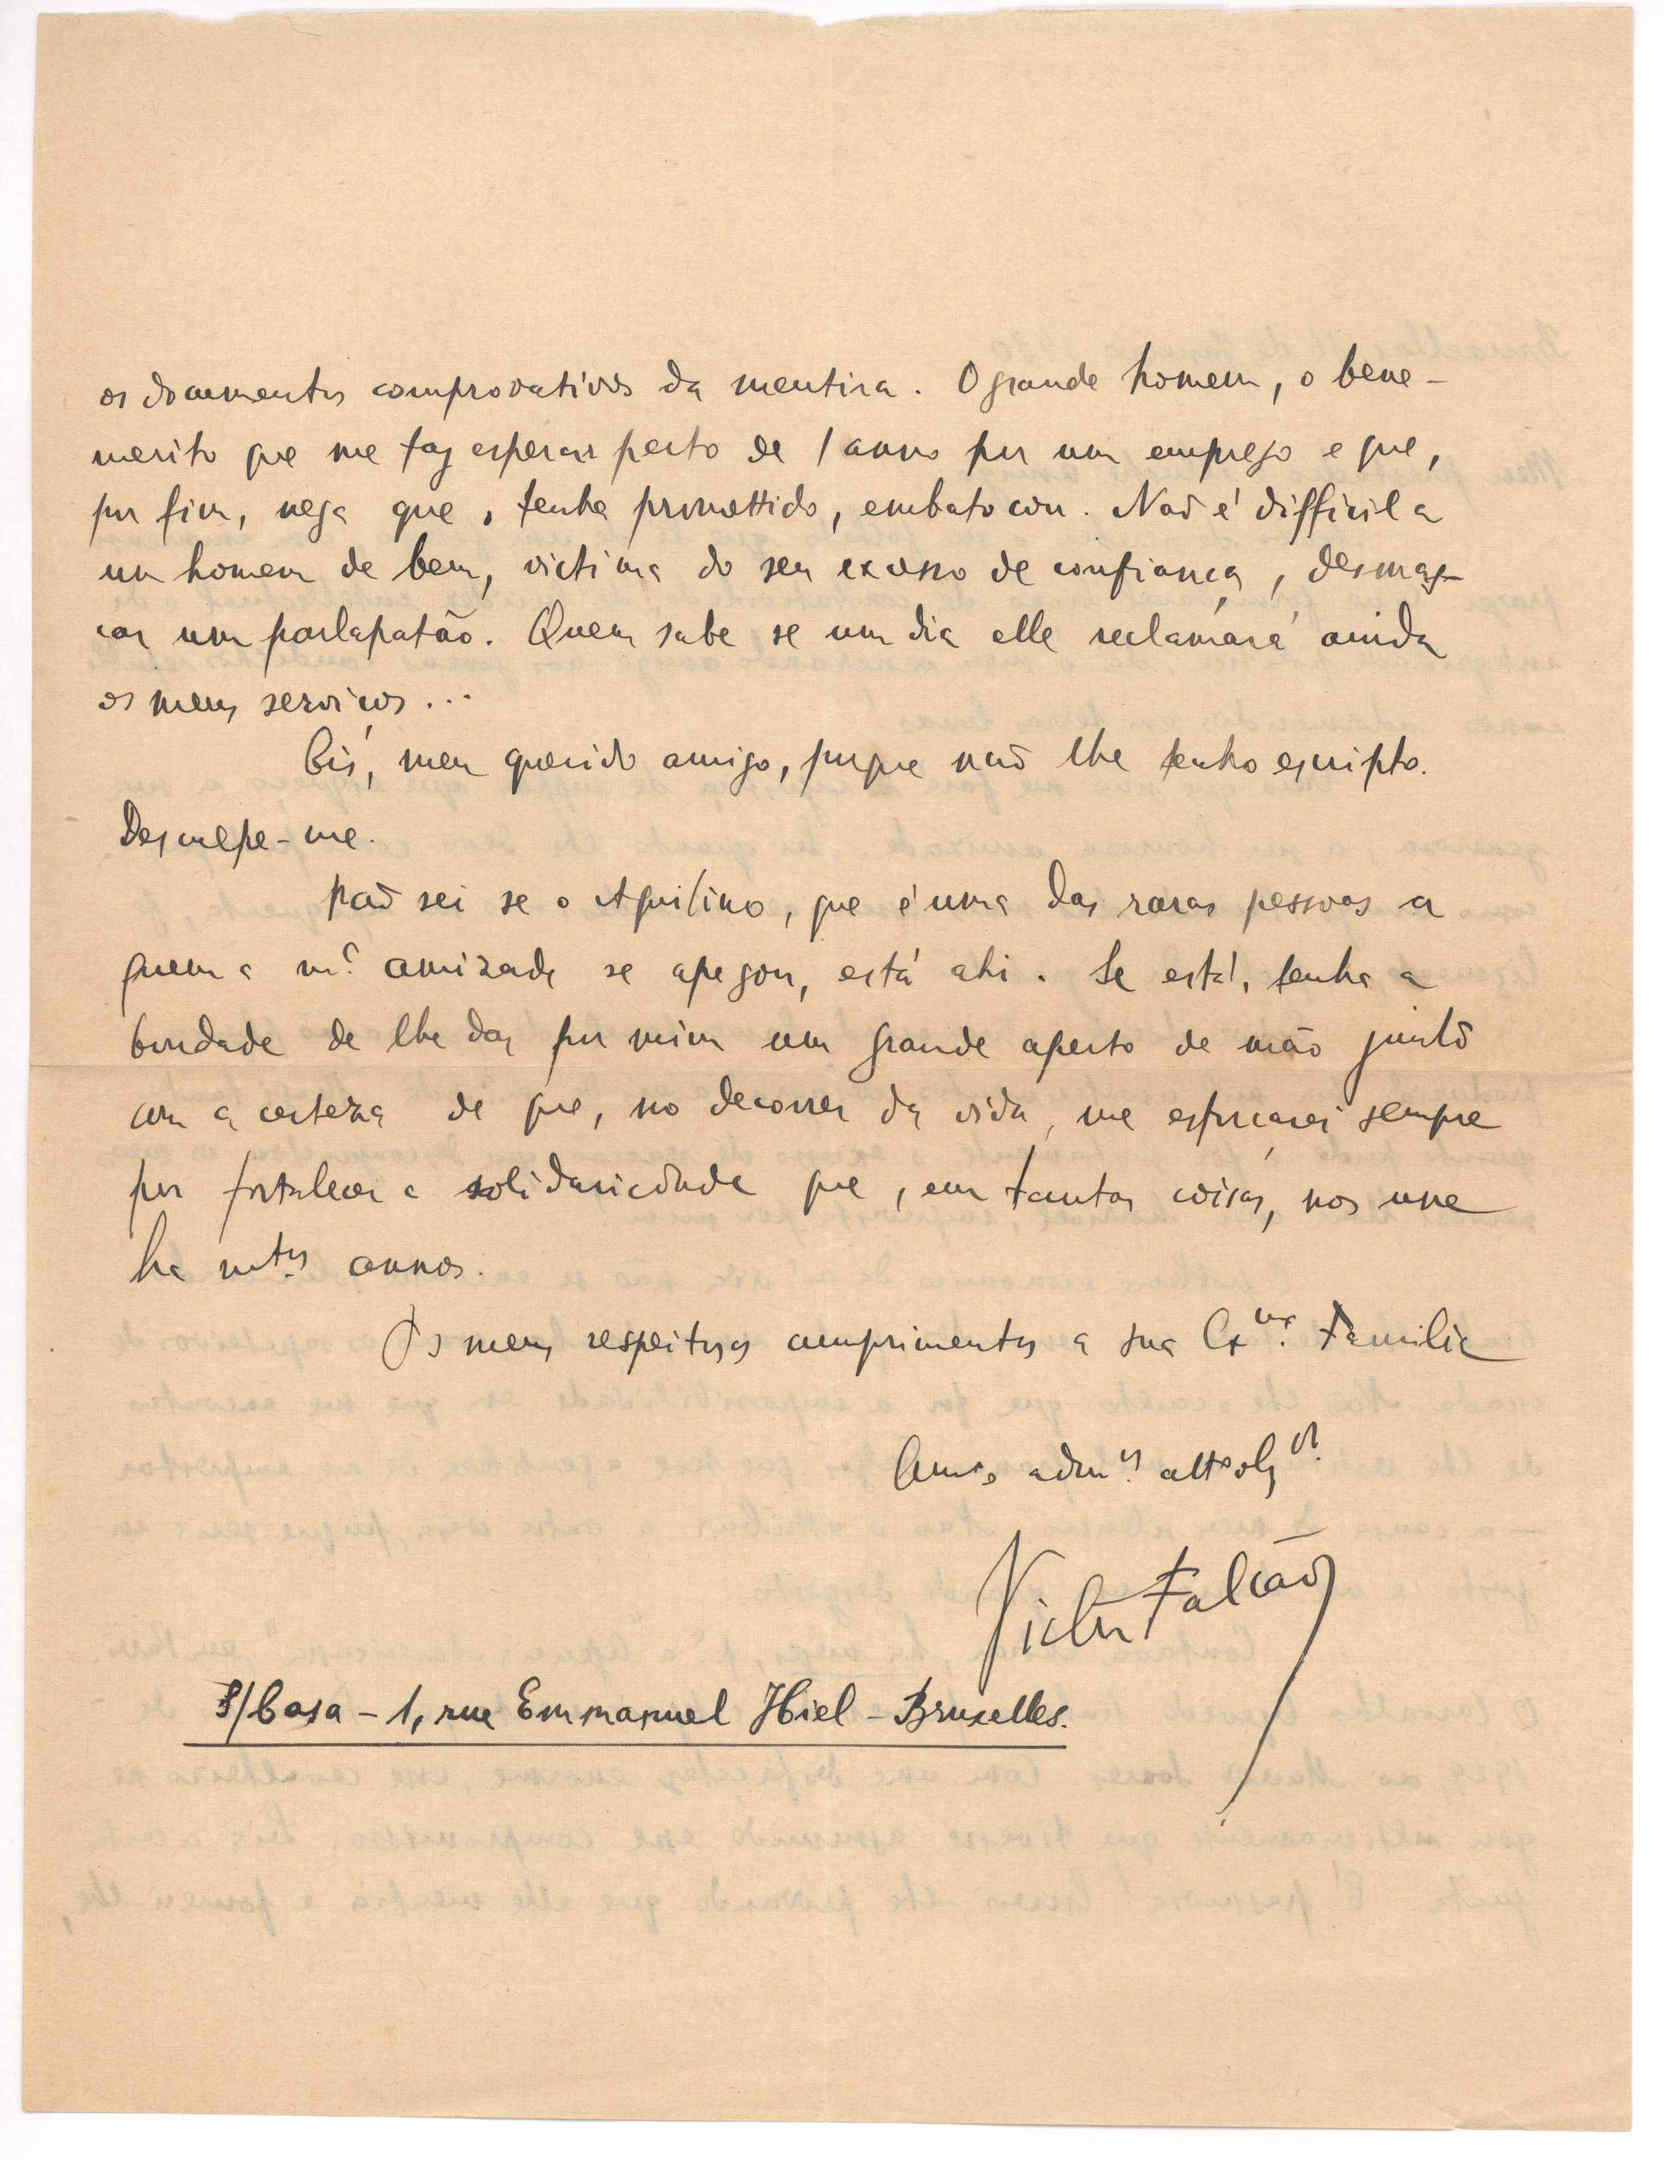 os documentos comprovativos da mentira. O grande homem, o bene-
merito que me faz esperar perto de 1 anno por um emprego e que,
por fim, nega que o tenha promettido, embatocou. Naõ é difficil a
um homem de bem, victima do seu excesso de confiança, desmas-
car um parlapatão. Quem sabe se um dia elle reclamará ainda
os meus serviços...
Eis, meu querido amigo, porque naõ lhe tenho escripto.
Desculpe-me.
Naõ sei se o Aquilino, que é uma das raras pessoas a
quem a mª amizade se apegou, está ahi. Se está, tenha a
bondade de lhe dar por mim um grande aperto de mão junto
com a certeza de que, no decorrer da vida, me esforçarei sempre
por fortalecer a solidariedade que, em tantas coisas, nos une
ha mtos annos.
Os meus respeitosos cumprimentos a sua Exma. Familia
Amo admor. atto obgdo.
Victor Falcaõ
S/Casa - 1, rue Emmanuel Hiel - Bruxelles.